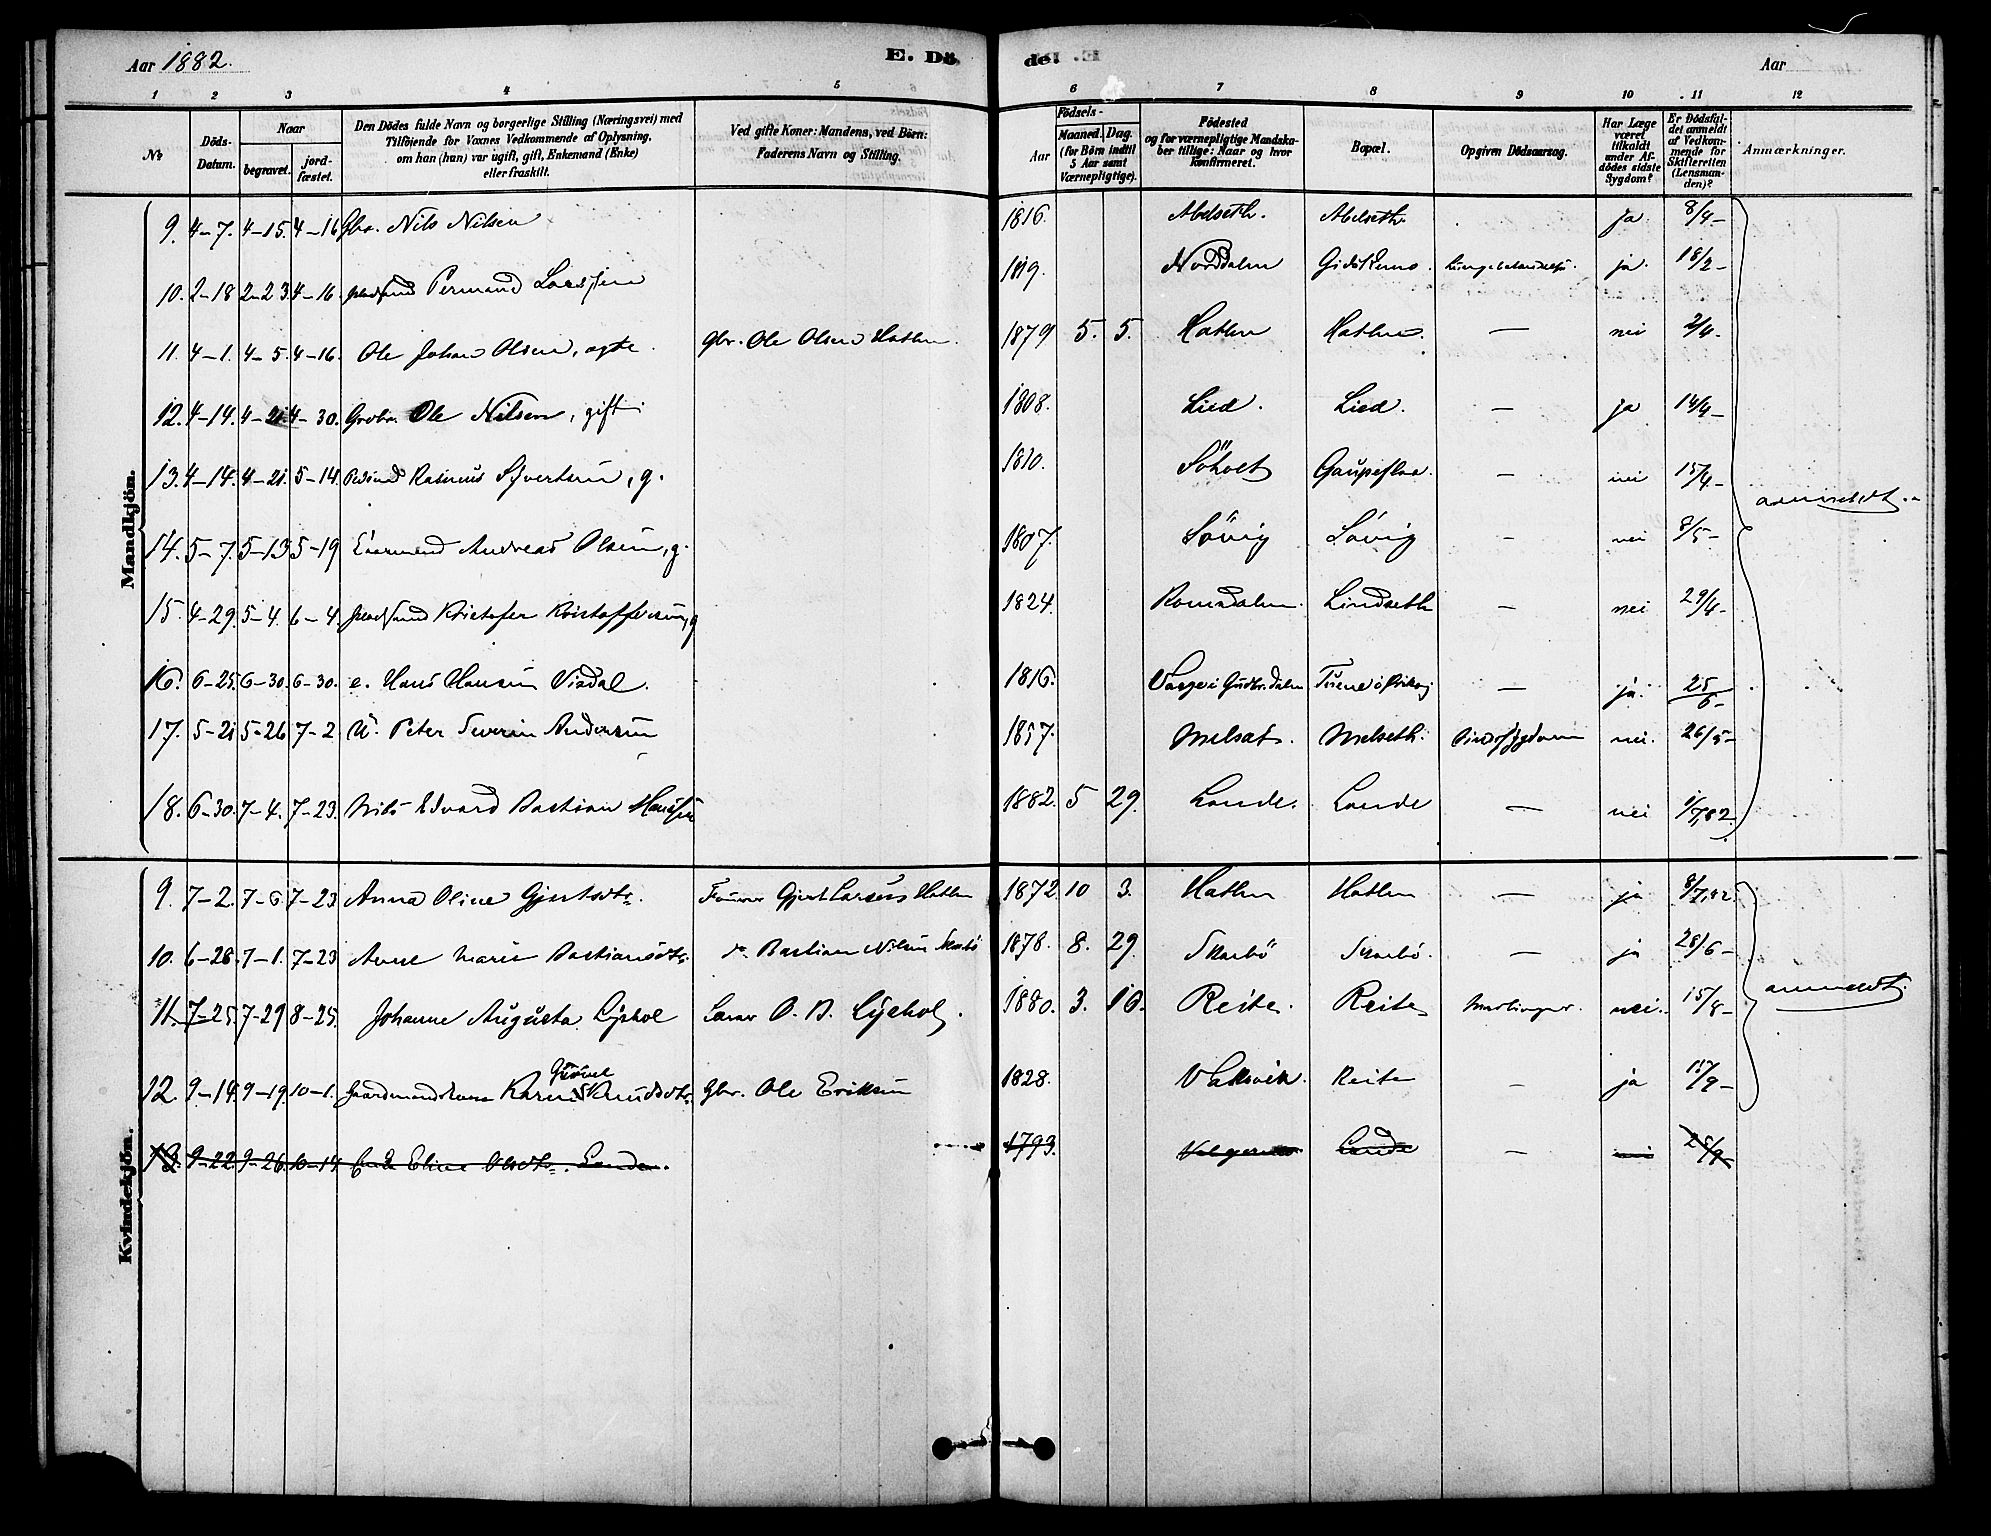 Aar 1882.
E. Dö
de.
Aar
1 2 3 4 5
6 7 8 9 10 11 12
No
Döds-Datum.
Naar
begravet.
jord-fæstet.
Den Dödes fulde Navn og borgerlige Stilling (Næringsvei) med
Tilföiende for Voxnes Vedkommende af Oplysning,
om han (hun) var ugift, gift, Enkemand (Enke)
eller fraskilt.
Ved gifte Koner: Mandens, ved Börn:
Faderens Navn og Stilling.
Födsels-
Aar
Maaned. Dag.
(for Börn indtil
5 Aar samt
Værnepligtige).
Födested
og for værnepligtige Mandska-
ber tillige: Naar og hvor
konfirmeret.
Bopæl.
Opgiven Dödsaarsag.
Har Læge
været
tilkaldt
under Af-
dödes sidste
Sygdom?
Er Dödsfal-
det anmeldt
af Vedkom-
mende for
Skifteretten
(Lensman-
den)?
Anmærkninger.
Mandkjön.
9. 4-7. 4-15. 4-16 Gbr. Nils Nilsen 1816. Abelseth. Abelseth. ja 8/4-
10. 2-18 2-23. 4-16. Permand Larssen 1819. Norddalen ja. 18/2-
11. 4-1. 4-5. 4-16. Ole Johan Olsen, ægte. Gbr. Ole Olsen Hatlen. 1879 5. 5. Hatlen Hatlen. — nei 2/4.
12. 4-14. 4-21. 4-30. Grdbr. Ole Nilsen, gift. 1808. Lied. Lied. — ja 14/4-
13. 4-14. 4-21. 5-14. Rasmus Syvertsen, g. 1810. Söholt Gaupeflaa. — nei 15/4-
14. 5-7. 5-13 5-19 Andreas Olsen, g. 1807. Sövig Sövig — nei 8/5-
15. 4-29. 5-4. 6-4. Kristofer Kristoffersen, g 1824. Romsdalen. Lindseth — nei 29/4-
16. 6-25. 6-30. 6-30. e. Hans Hansen Visdal. 1816. Vaage i Gudbr.dalen — ja. 25/6-
17. 5-21 5-26 7-2. U. Peter Severin Andersen 1857. Melsæt. Melseth. nei. 26/5-
18. 6-30. 7-4. 7-23. Nils Edvard Bastian Hansen 1882. 5 29. Lande. Lande — nei 1/7,82.
anmeldt.
Kvindekjön.
9. 7-2. 7-6. 7-23 Anna Oline Gjertsdtr. Gjert Larsens Hatlen 1872. 10 3. Hatlen Hatlen — ja 8/7,82.
10. 6-28. 7-1. 7-23 Anne Marie Bastiansdtr. Bastian Nilsen Skarbö 1878. 8. 29. Skarbö Skarbö. — ja 28/6-
11. 7-25. 7-29 8-25. Johanne Augusta Lyshol Lærer O. B. Lyshol. 1880. 3. 10. Reite. Reite nei. 15/8-
12. 9-14. 9-19. 10-1. Gaardmandskone Karen Gurine Knudsdtr. Gbr. Ole Eriksen 1828. Vaksvik. Reite — ja 15/9-
13. 9-22 9-26. 10-14 Enke Eline Olsdtr. Lande. 1793. Lande — nei 25/9-
anmeldt.